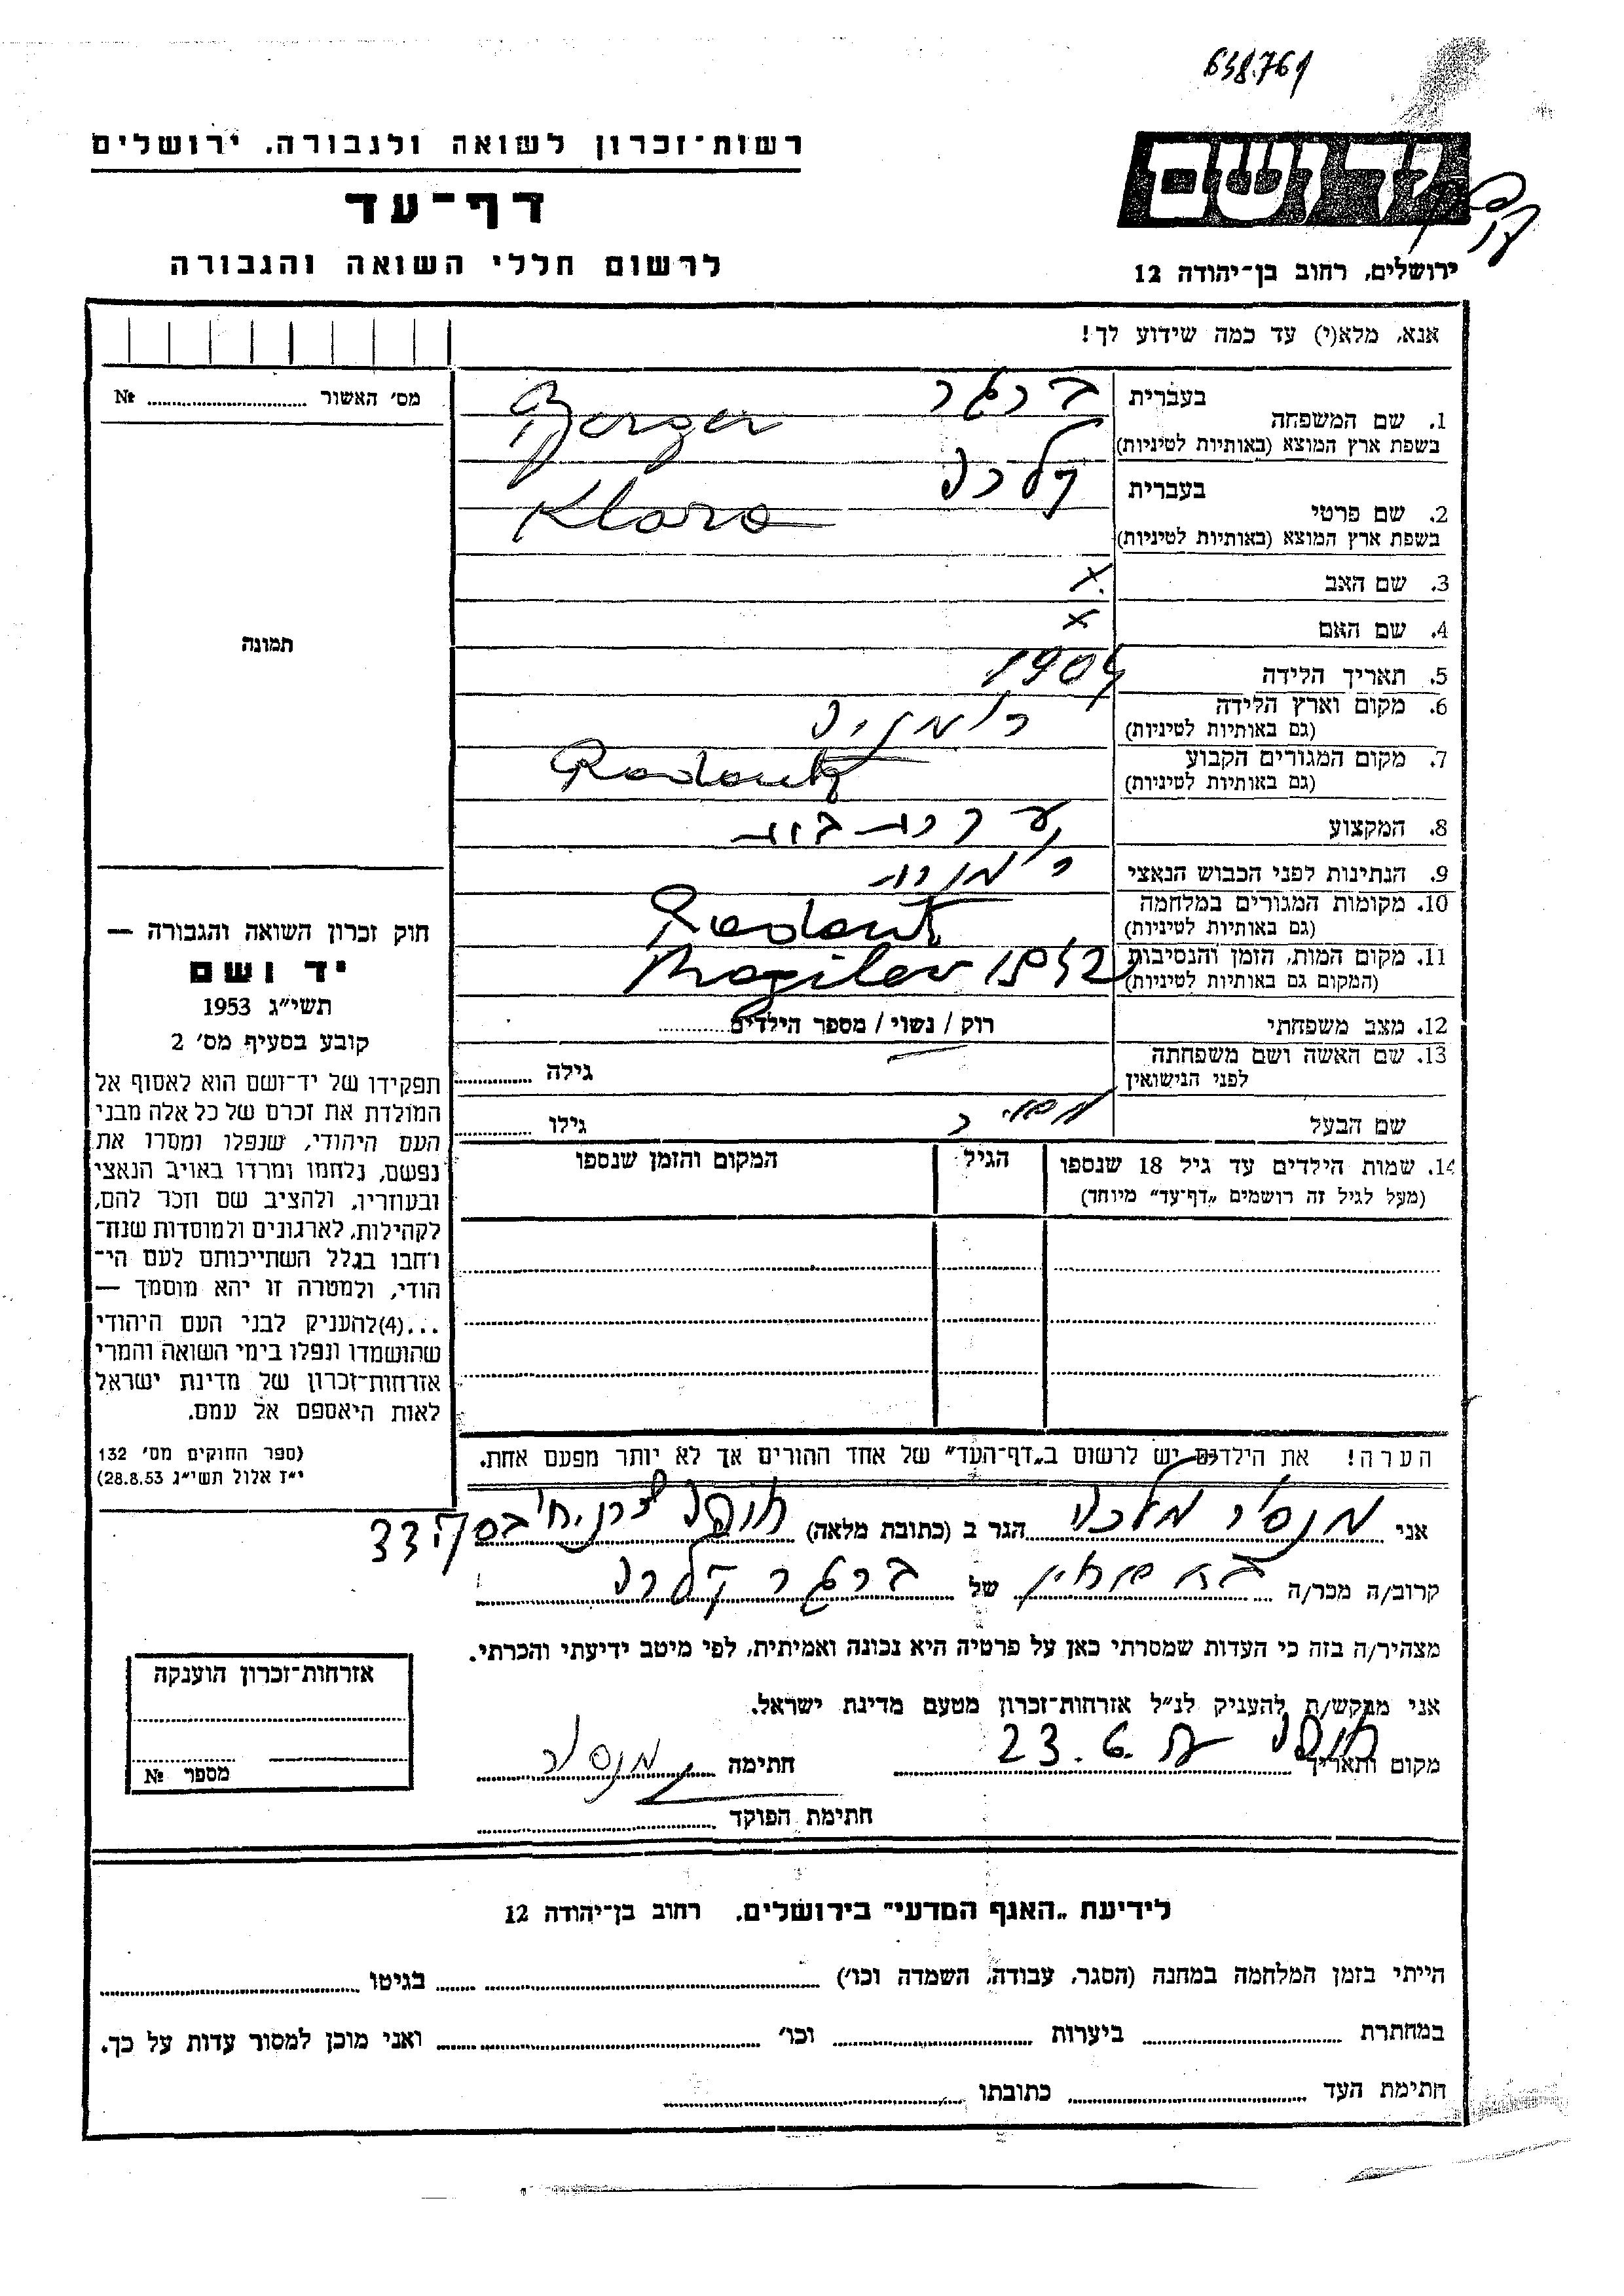 638.761
רשות־זכרון לשואה ולגבורה, ירושלים
דף־עד
לרשום חללי השואה והגבורה
ידושם
ירושלים, רחוב בן־יהודה 12
אנא, מלא(י) עד כמה שידוע לך!
מס׳ האשור № 
תמונה
1. שם המשפחה
בעברית ברגר
בשפת ארץ המוצא (באותיות לטיניות) Berger
2. שם פרטי
בעברית קלרה
בשפת ארץ המוצא (באותיות לטיניות) Klara
3. שם האב x
4. שם האם x
5. תאריך הלידה 1904
6. מקום וארץ הלידה רומניה
(גם באותיות לטיניות)
7. מקום המגורים הקבוע Radautz
(גם באותיות לטיניות)
8. המקצוע עקרת בית
9. הנתינות לפני הכבוש הנאצי רומנית
10. מקומות המגורים במלחמה Radautz
(גם באותיות לטיניות)
11. מקום המות, הזמן והנסיבות Mogilev 1942
(המקום גם באותיות לטיניות)
12. מצב משפחתי רוק / נשוי / מספר הילדים
13. שם האשה ושם משפחתה
לפני הנישואין גילה
שם הבעל גילו
14. שמות הילדים עד גיל 18 שנספו הגיל המקום והזמן שנספו
(מעל לגיל זה רושמים „דף־עד״ מיוחד)
הערה! את הילדים יש לרשום ב„דף־העד״ של אחד ההורים אך לא יותר מפעם אחת.
חוק זכרון השואה והגבורה —
יד ושם
תשי״ג 1953
קובע בסעיף מס׳ 2
תפקידו של יד־ושם הוא לאסוף אל
המולדת את זכרם של כל אלה מבני
העם היהודי, שנפלו ומסרו את
נפשם, נלחמו ומרדו באויב הנאצי
ובעוזריו, ולהציב שם וזכר להם,
לקהילות, לארגונים ולמוסדות שנח־
רחבו בגלל השתייכותם לעם הי־
הודי, ולמטרה זו יהא מוסמך —
...(4)להעניק לבני העם היהודי
שהושמדו ונפלו בימי השואה והמרי
אזרחות־זכרון של מדינת ישראל
לאות היאספם אל עמם.
(ספר החוקים מס׳ 132
י״ז אלול תשי״ג 28.8.53)
אני מנסיר מלכה הגר ב (כתובת מלאה) חיפה 33
קרוב/ה מכר/ה של ברגר קלרה
מצהיר/ה בזה כי העדות שמסרתי כאן על פרטיה היא נכונה ואמיתית, לפי מיטב ידיעתי והכרתי.
אני מבקש/ת להעניק לנ״ל אזרחות־זכרון מטעם מדינת ישראל.
מקום ותאריך חיפה 23.6. חתימה מנסיר
חתימת הפוקד
אזרחות־זכרון הוענקה
מספר №
לידיעת „האגף המדעי״ בירושלים, רחוב בן־יהודה 12
הייתי בזמן המלחמה במחנה (הסגר, עבודה, השמדה וכו׳) בגיטו
במחתרת ביערות וכו׳ ואני מוכן למסור עדות על כך.
חתימת העד כתובתו